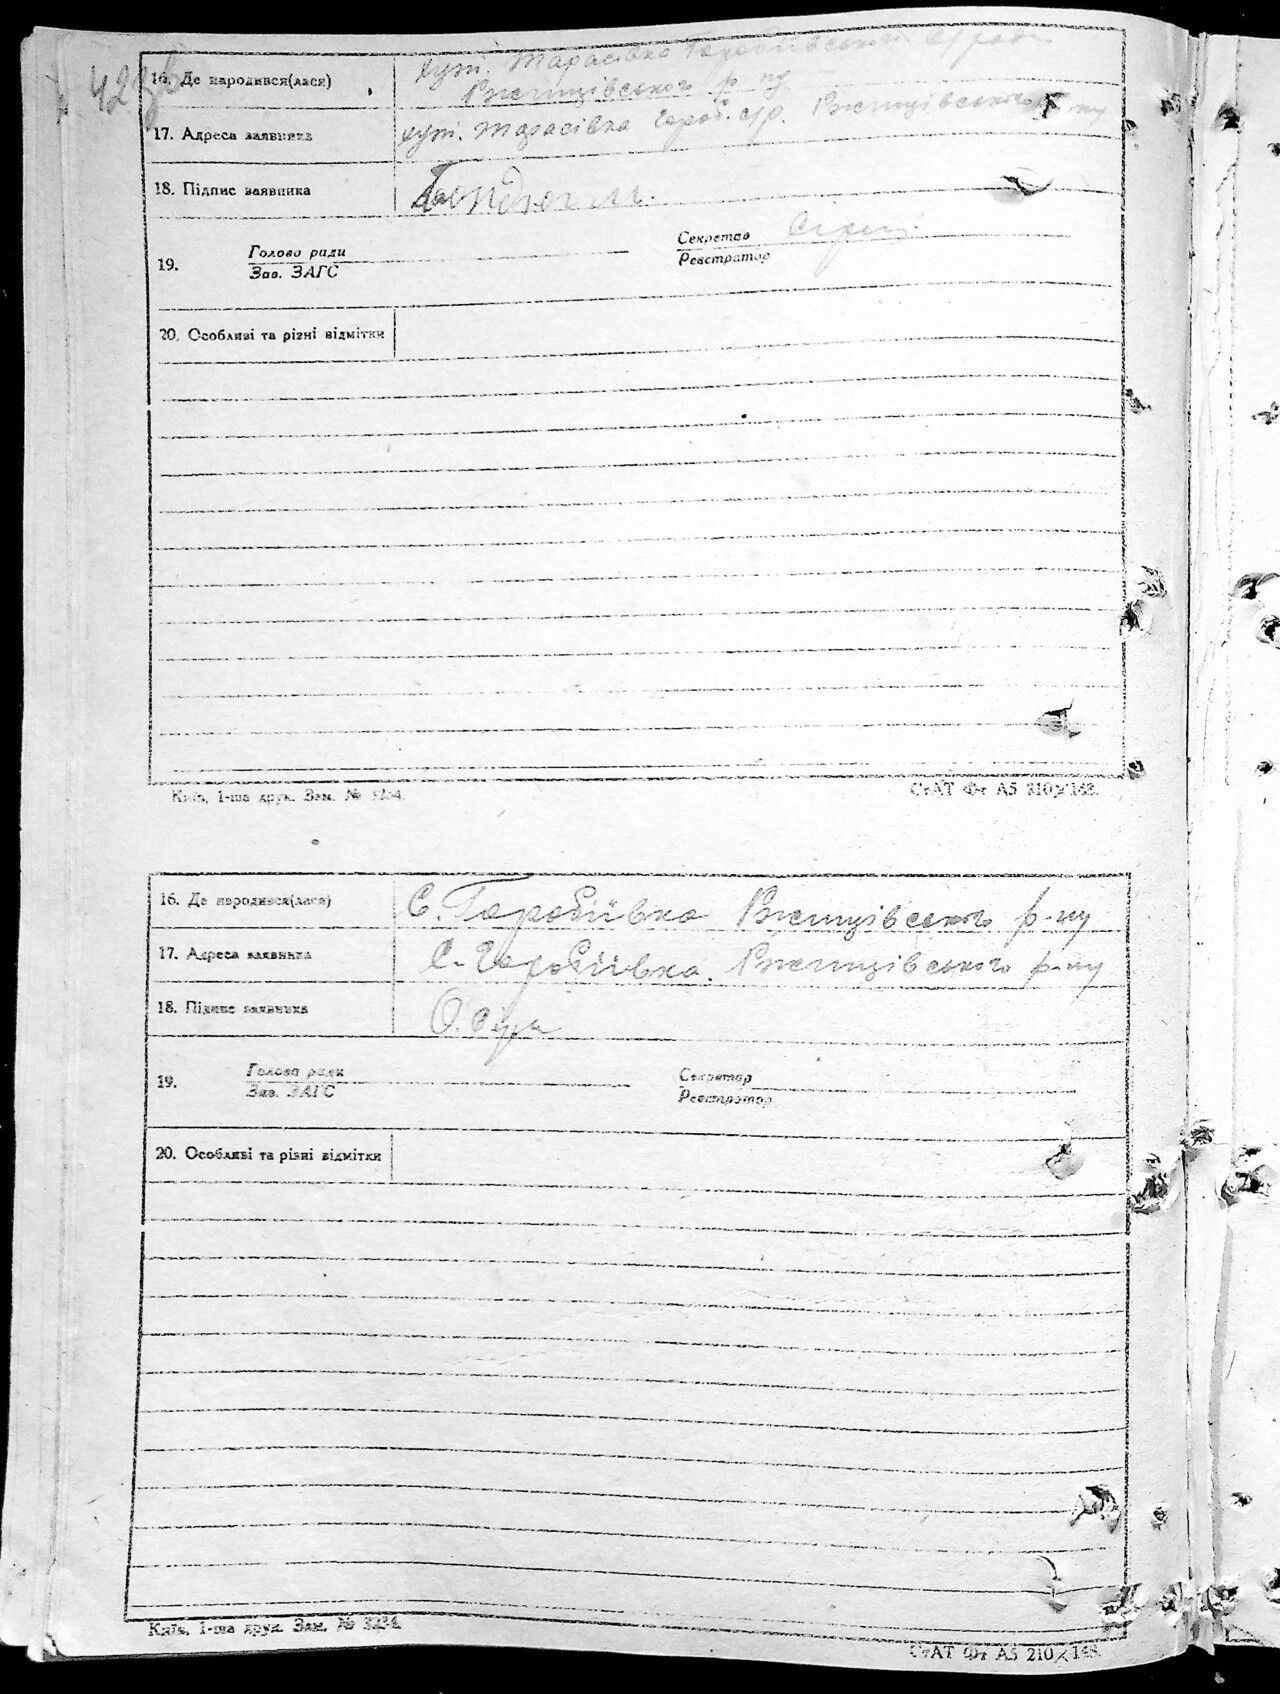 423 зв
16. Де народився(лася) хут. Тарасівка Горобіївської с/ради
Ржищівського р-ну
17. Адреса заявника хут. Тарасівка Гороб. с/р. Ржищівського р-ну
18. Підпис заявника Бондюг М.
19. Голова ради
Зав. ЗАГС
Секретар
Реєстратор
20. Особливі та різні відмітки
Київ, 1-ша друк. Зам. № 3234.
СтАТ Фт А5 210×148.
16. Де народився(лася) С. Горобіївка Ржищівського р-ну
17. Адреса заявника С. Горобіївка. Ржищівського р-ну
18. Підпис заявника О. Сіра
19. Голова ради
Зав. ЗАГС
Секретар
Реєстратор
20. Особливі та різні відмітки
Київ, 1-ша друк. Зам. № 3234.
СтАТ Фт А5 210×148.